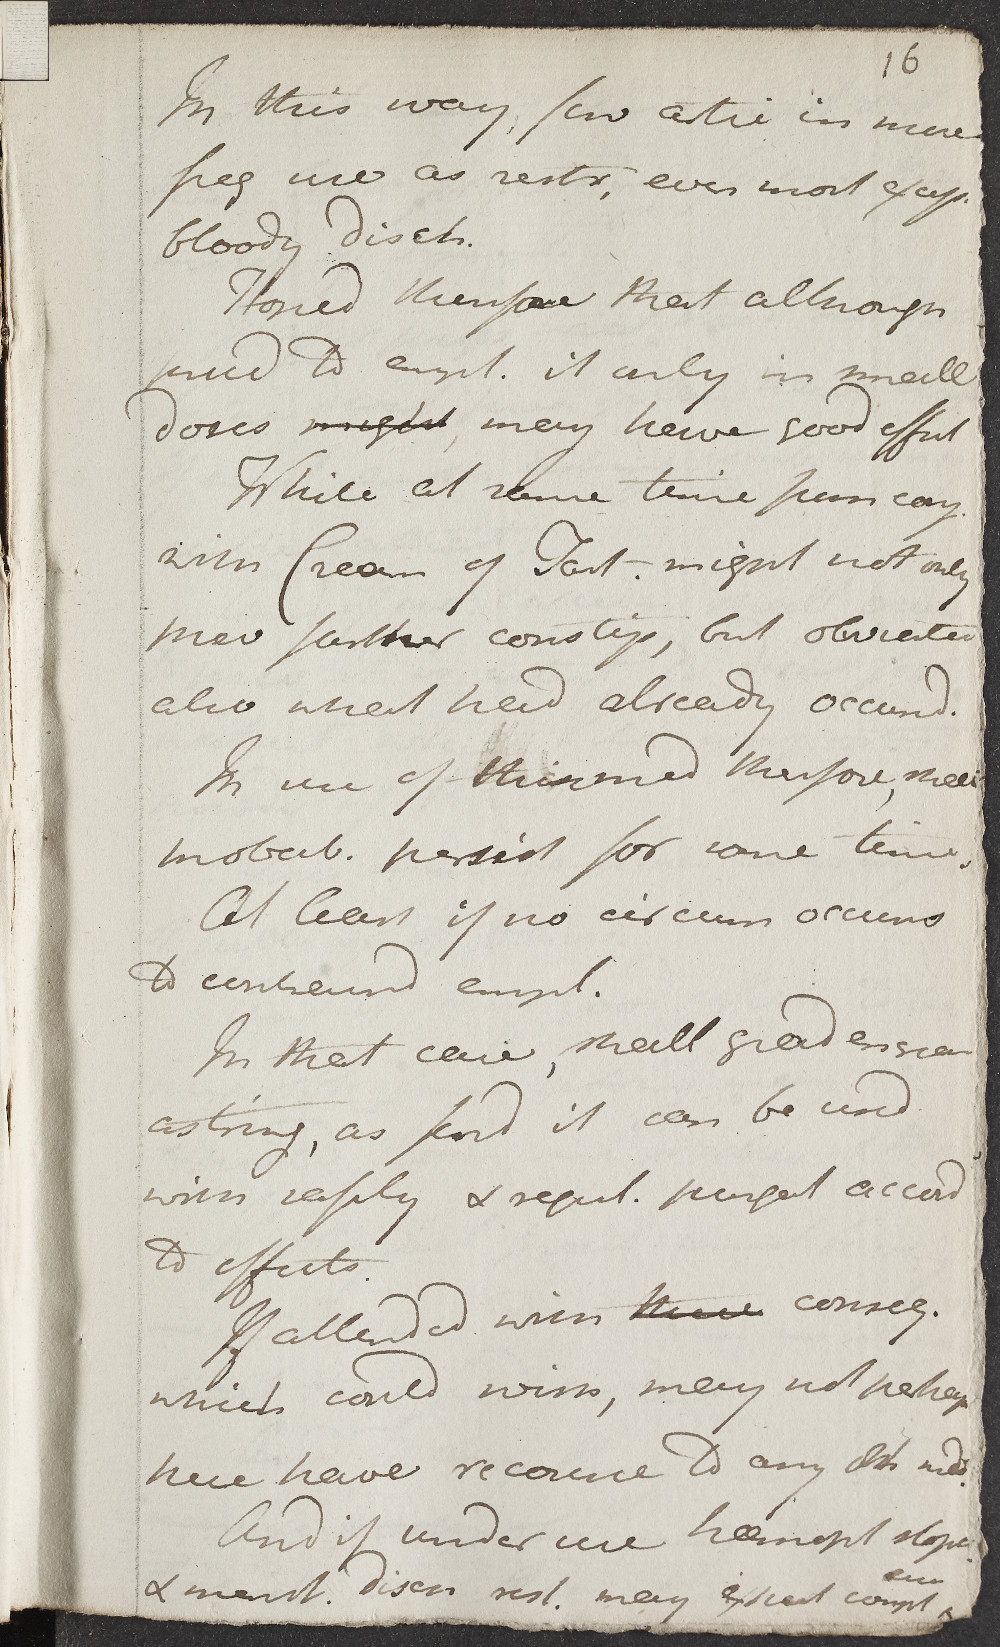 16
In this way, few artic in more
freq use as restr, even most excess.
bloody disch.
Hoped therefore that although
prud to empl. it only in small
doses might, may have good effect
While at same time from conj.
with Cream of Tart. might not only
prev farther constip, but obviated
also what had already occurrd.
In use of this med therefore, shall
probab. persist for some time.
At least if no circum occurrs
to contraind empl.
In that case, shall grad encrea
astring, as find it can be used
with safety & regul. purgat accord
to effects.
If attended with these conseq.
which could wish, may not perhaps
here have recourse to any oth med.
And if under use hæmopt stopt
& menst. disch rest. may expect compl